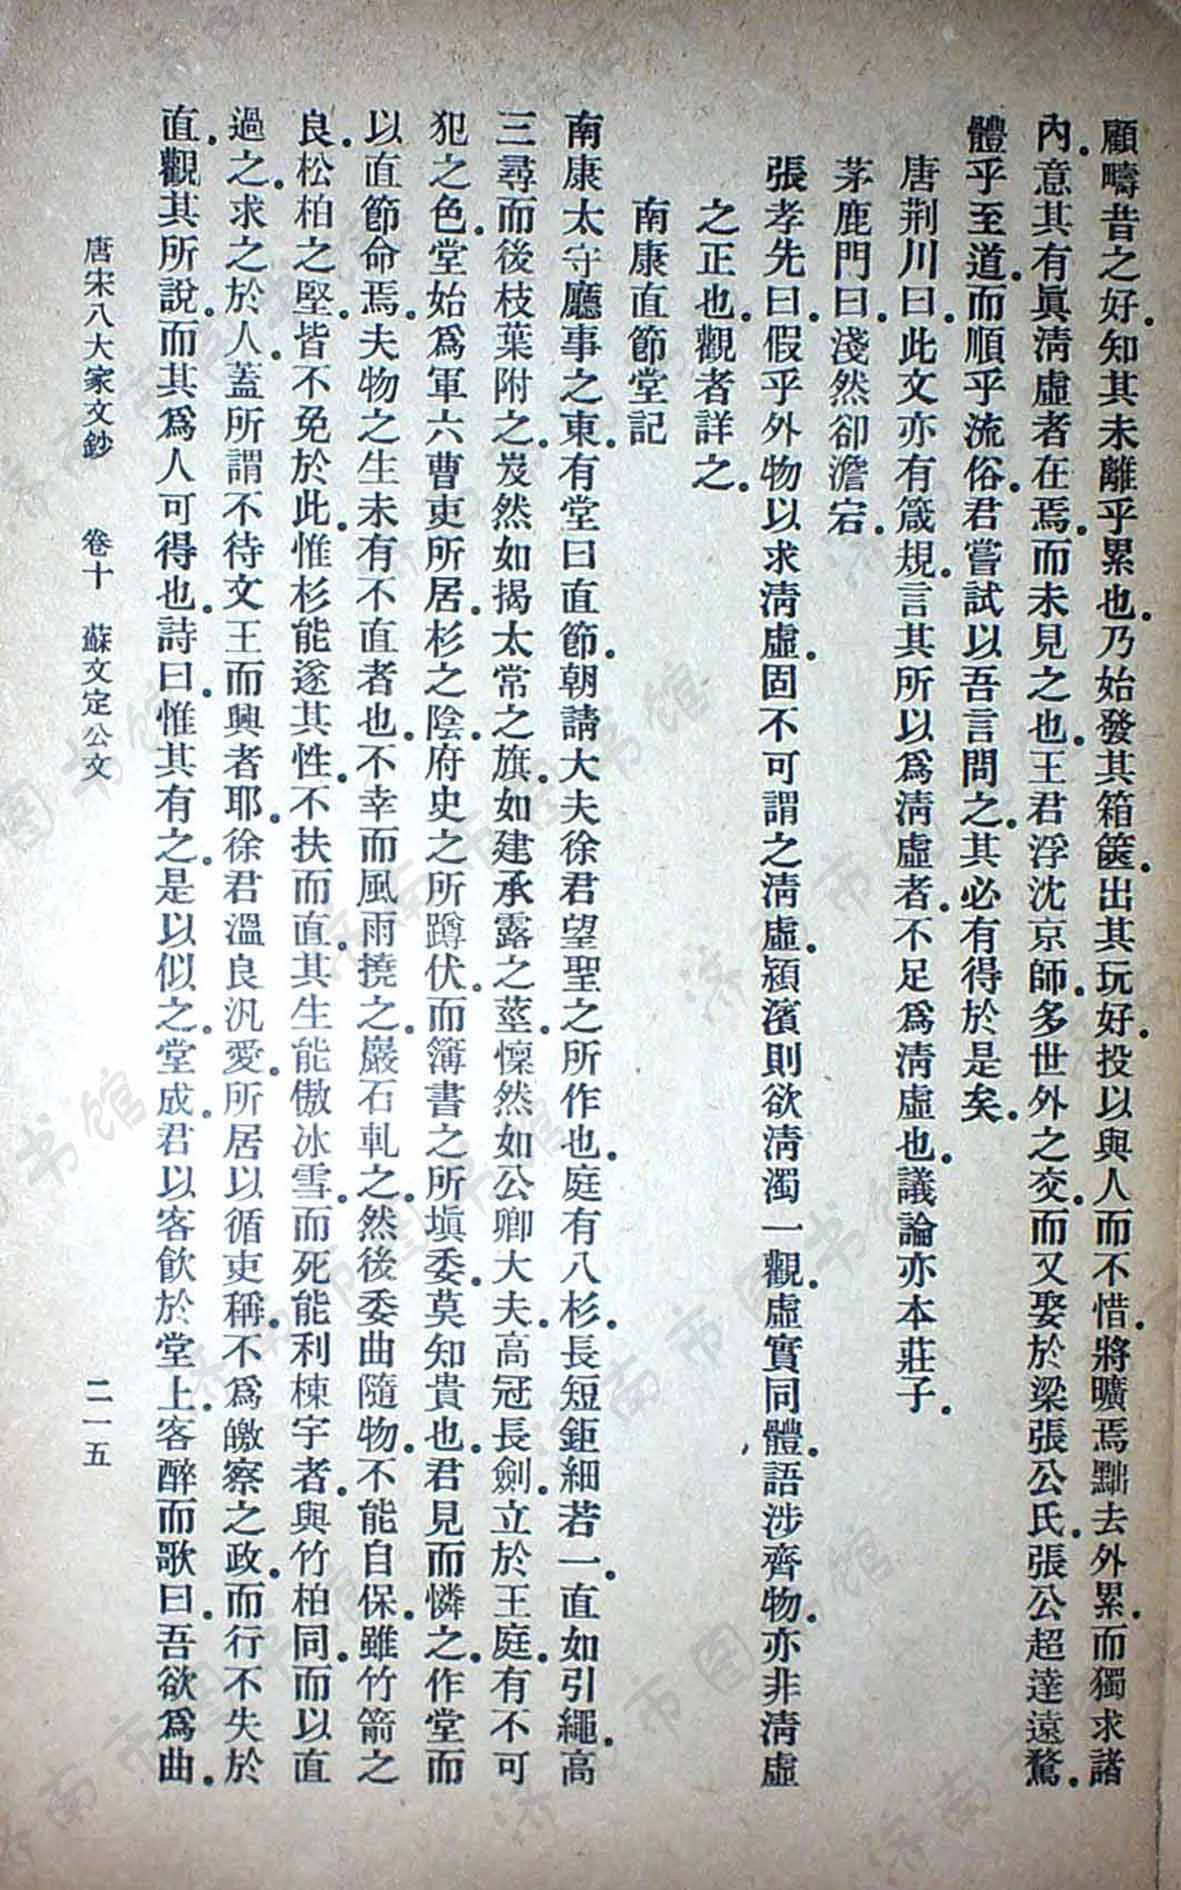 顧疇昔之好。知其未離乎累也。乃始發其箱篋。出其玩好。投以與人而不惜。將曠焉黜去外累。而獨求諸
內。意其有眞淸虛者在焉。而未見之也。王君浮沈京師。多世外之交。而又娶於梁張公氏。張公超達遠騖。
體乎至道。而順乎流俗。君嘗試以吾言問之。其必有得於是矣。
唐荆川曰。此文亦有箴規。言其所以爲淸虛者。不足爲淸虛也。議論亦本莊子。
茅鹿門曰。淺然卻澹宕。
張孝先曰。假乎外物以求淸虛。固不可謂之淸虛。潁濱則欲淸濁一觀。虛實同體。語涉齊物。亦非淸虛
之正也。觀者詳之。
南康直節堂記
南康太守廳事之東。有堂曰直節。朝請大夫徐君望聖之所作也。庭有八杉。長短鉅細若一。直如引繩。高
三尋而後枝葉附之。岌然如揭太常之旗。如建承露之莖。懍然如公卿大夫。高冠長劍。立於王庭。有不可
犯之色。堂始爲軍六曹吏所居。杉之陰。府史之所蹲伏。而簿書之所塡委。莫知貴也。君見而憐之。作堂而
以直節命焉。夫物之生未有不直者也。不幸而風雨撓之。巖石軋之。然後委曲隨物。不能自保。雖竹箭之
良。松柏之堅。皆不免於此。惟杉能遂其性。不扶而直。其生能傲冰雪。而死能利棟宇者。與竹柏同。而以直
過之。求之於人。蓋所謂不待文王而興者耶。徐君溫良汎愛。所居以循吏稱。不爲皦察之政。而行不失於
直。觀其所說。而其爲人可得也。詩曰。惟其有之。是以似之。堂成。君以客飮於堂上。客醉而歌曰。吾欲爲曲。
唐宋八大家文鈔 卷十 蘇文定公文 二一五
济南市图书馆